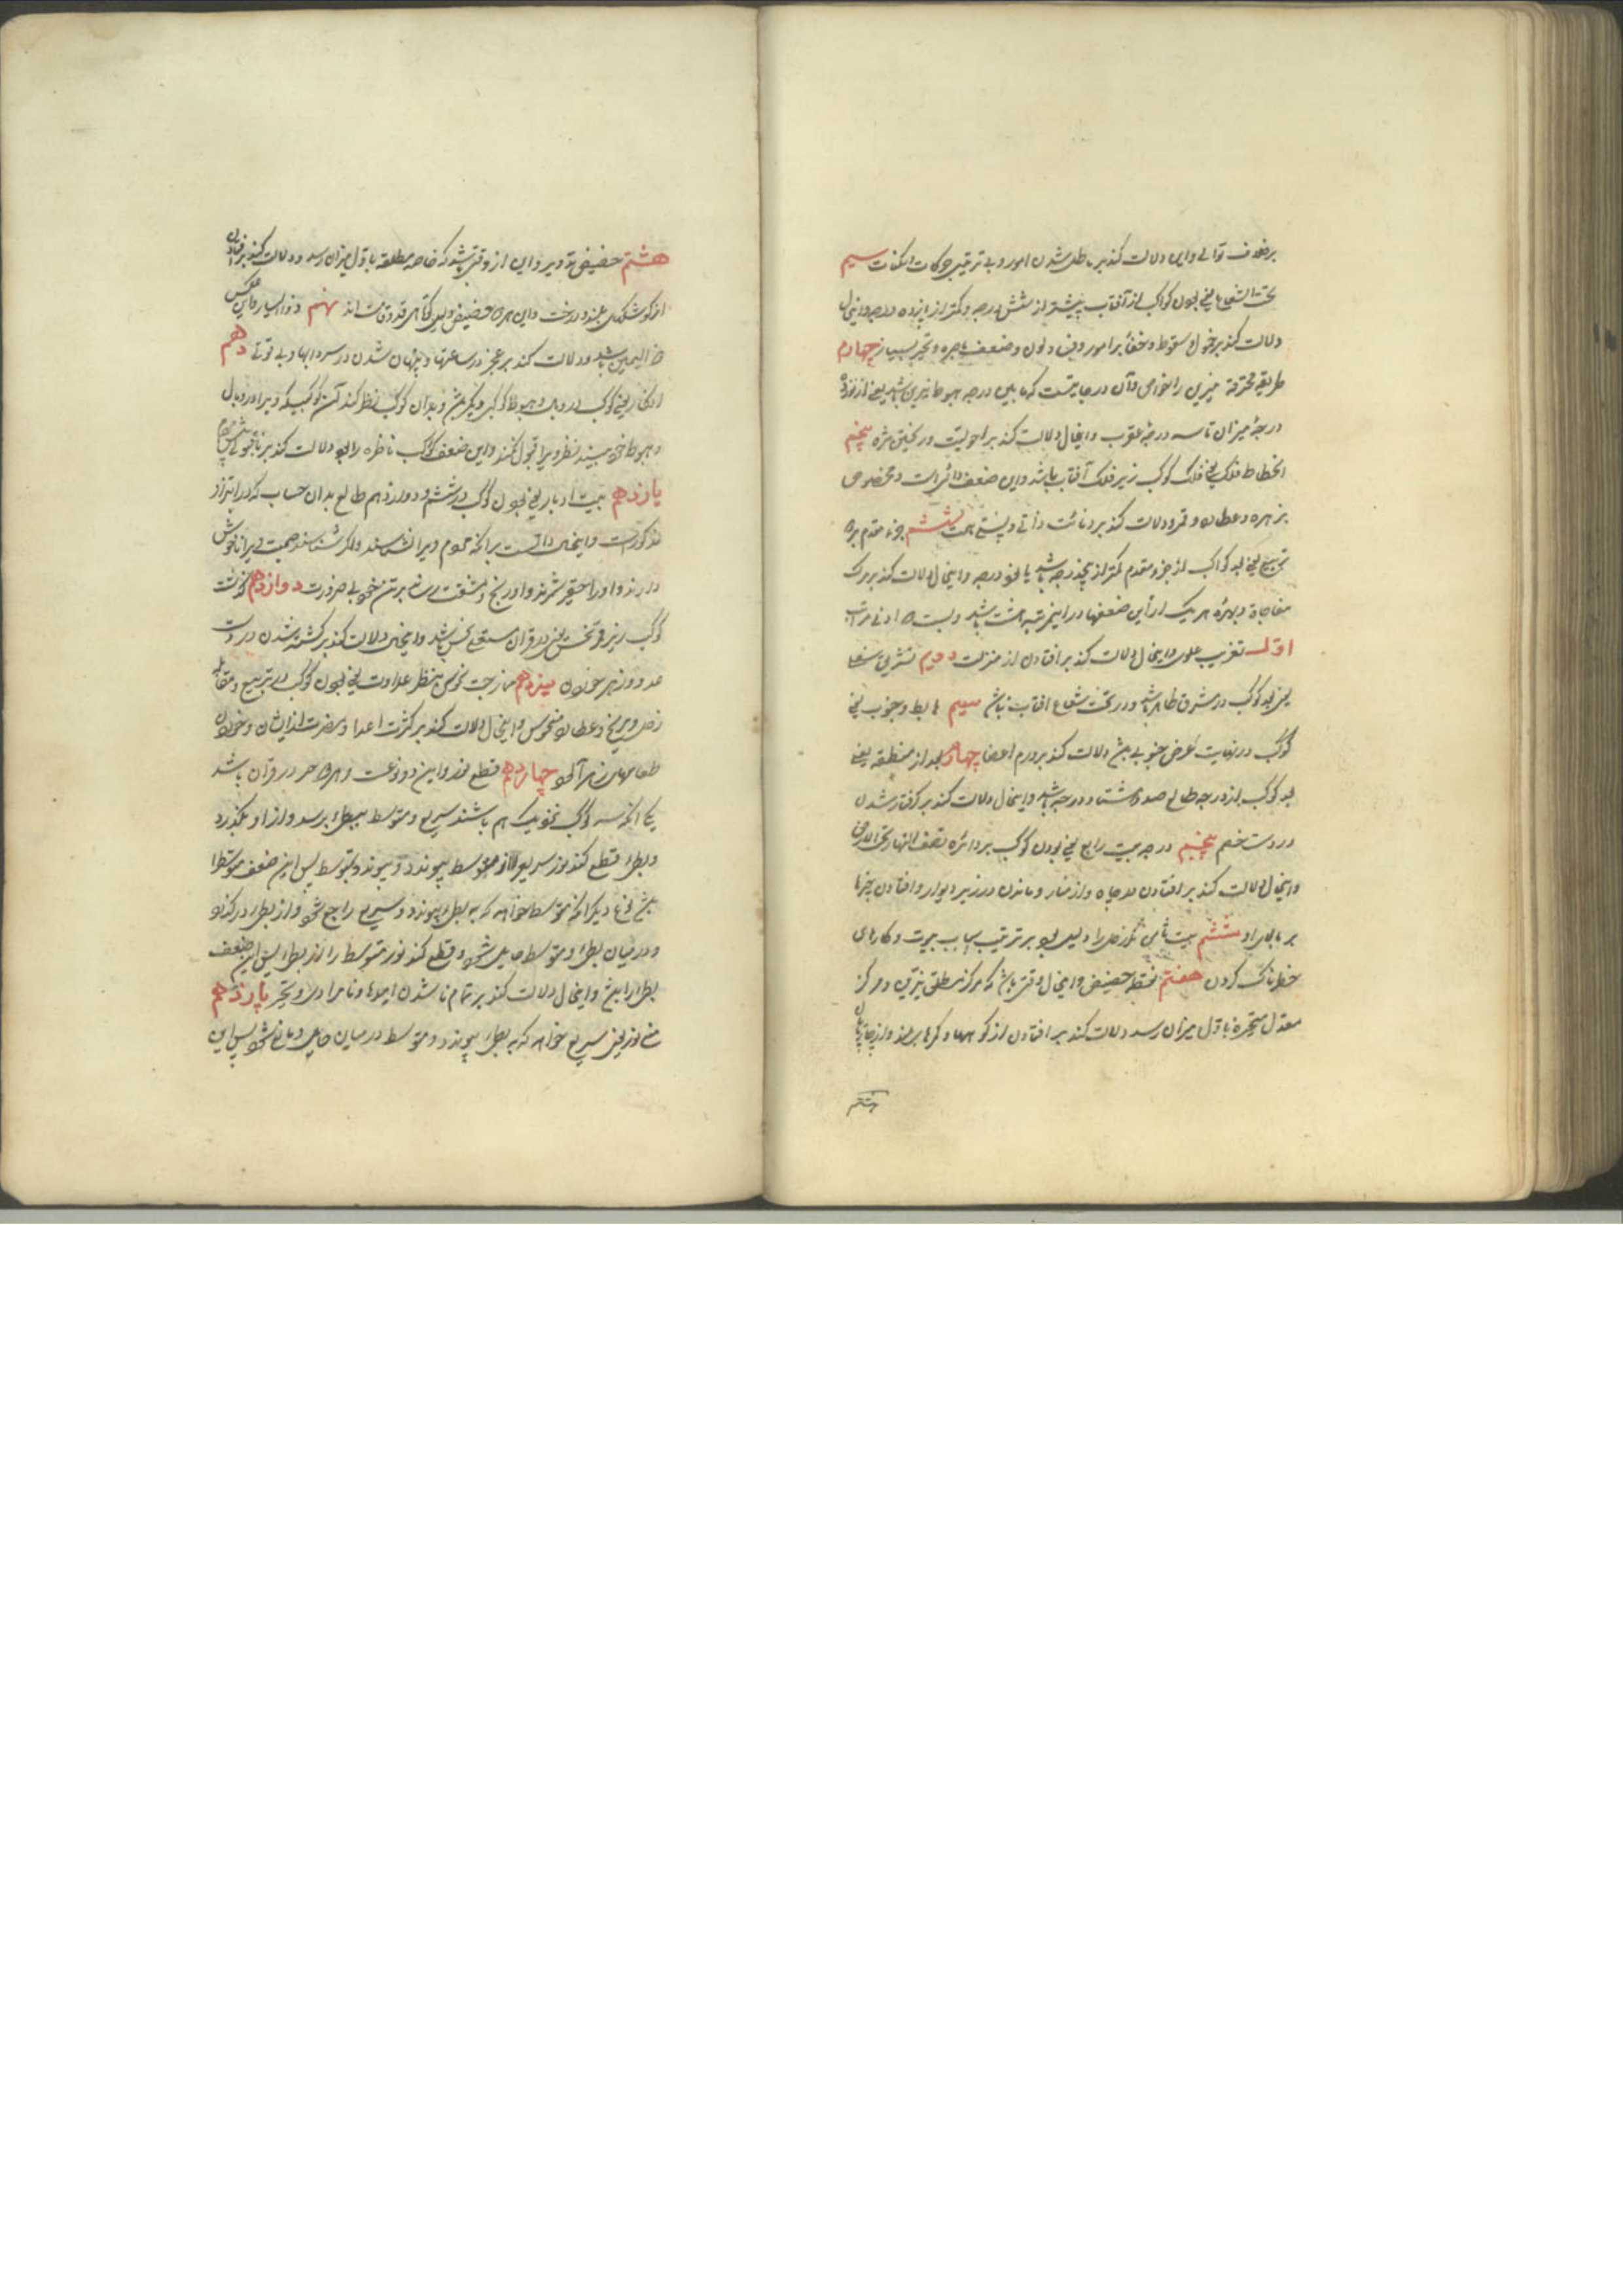 بر خلاف توالی و این دلالت کند بر باطل شدن امور و بی ترتیبی حرکات و سکنات سیم
تحت الشعاع یعنی بودن کواکب از آفتاب بیشتر از شش درجه و کمتر از پانزده درجه و اینحال
دلالت کند بر خمول و سقوط و خفاء بر امور و ضعف و تحیر بسیار چهارم
طریقه محترقه نیرین را بخواص و آن در جائیست که مابین درجه هبوط نیرین باشد یعنی از نوزده
درجه میزان تا سه درجه عقرب و اینحال دلالت کند بر پنجم
انحطاط فلک یعنی فلک کوکب زیر فلک آفتاب باشد و این ضعف دائم است و مخصوص
بزهره و عطارد و قمر و دلالت کند بر دنائت ذاتی و پستی همت ششم جزء مقدم بر
یعنی بعد کواکب از جزء مقدم کمتر از پنج درجه باشد یا پنج درجه و اینحال دلالت کند بر مرگ
مفاجاة و بهره هر یک از این ضعفها در این مرتبه هشت باشد و بیست ادنی مراتب
اول تغریب علوی و اینحال دلالت کند بر افتادن از منزلت دویم تشریق سفلی
یعنی بعد کوکب در مشرق ظاهر باشد و در تحت شعاع افتاب نباشد سیم هابط و جنوب یعنی
کوکب در نهایت عرض جنوبی باشد دلالت کند بر ورم اعضا چهارم بعد از منطقه یعنی
بعد کوکب از درجه طالع صد و هشتاد درجه باشد و اینحال دلالت کند بر گرفتار شدن
در دست خصم پنجم درجه بیت رابع یعنی بودن کوکب بر دائره نصف النهار تحت الارض
و اینحال دلالت کند بر افتادن در چاه و از منار و ماندن در زیر دیوار و افتادن چیزها
بر بالای او ششم بیت ثامن مگر زحل را و دلیل بود بر ترتیب اسباب موت و کارهای
خطرناک کردن هفتم نقطه حضیض و اینحال وقتی باشد که مرکز مطلق نیرین و مرکز
معدل متحیره باول میزان رسد دلالت کند بر افتادن از کوهها و کمرها بلند و از
هشتم
هشتم حضیض تدویر و این از وقتی باشد که خاصه مطلقه باول میزان رسد و دلالت کند بر افتادن
از کوشکهای بلند و درخت و این هر دو حضیض دلیل کوتاهی قد و قامت اند نهم ذو الیسار و این عکس
ذو الیمین باشد و دلالت کند بر عجز در ساعتها و پنهان شدن در سردابها و بی قوتی دهم
انکار یعنی کوکب در وبال و هبوط کوکبی دیگر باشد و بدان کوکب نظر کند آن کوکب که ویرا در وبال
و هبوط خود بیند نظر ویرا قبول نکند و این ضعف کوکب ناظره را بود و دلالت کند بر
یازدهم بیت ادبار یعنی بودن کوکب در ششم و دوازدهم طالع بدان حساب که در ابتزاز
مذکور است و اینحال دالست بر آنکه مردم ویرا نشناسند و اگر شناسند صحبت ویرا ناخوش
دارند و او را حقیر شمرند و او رنج و مشقت رساند بر تن خود بی ضرورت دوازدهم گذشت
کوکب زیر قرآن نحس یعنی در قرآن سفلی نحس باشد و اینحال دلالت کند بر کشته شدن در دست
عدو و زهر خوردن سیزدهم ممازجت نحوس بنظر عداوت یعنی بودن کوکب در تربیع و مقابله
زحل و مریخ و عطارد منحوس و اینحال دلالت کند بر کثرت اعدا و مضرت از ایشان و خوردن
طعامهای زهرآلود چهاردهم قطع نور و این دو نوعست و هر دو در قرآن باشد
یکی آنکه سه کوکب بنزدیک هم باشند سریع و متوسط ببطیء برسد و از او بگذرد
و بطیء قطع کند نور سریع از متوسط پس این ضعف متوسط را
باشد نوع دیگر آنکه متوسط خواهد که به بطیء پیوندد و سریع راجع شود و از بطیء درگذرد
و در میان بطیء و متوسط حایل شود و قطع کند نور متوسط را از بطیء پس این ضعف
بطیء را باشد و اینحال دلالت کند بر تمام ناشدن امیدها و نامرادی و تحیر پانزدهم
منع نور یعنی سریع خواهد که به بطیء پیوندد و متوسط در میان حایل و مانع شود پس این